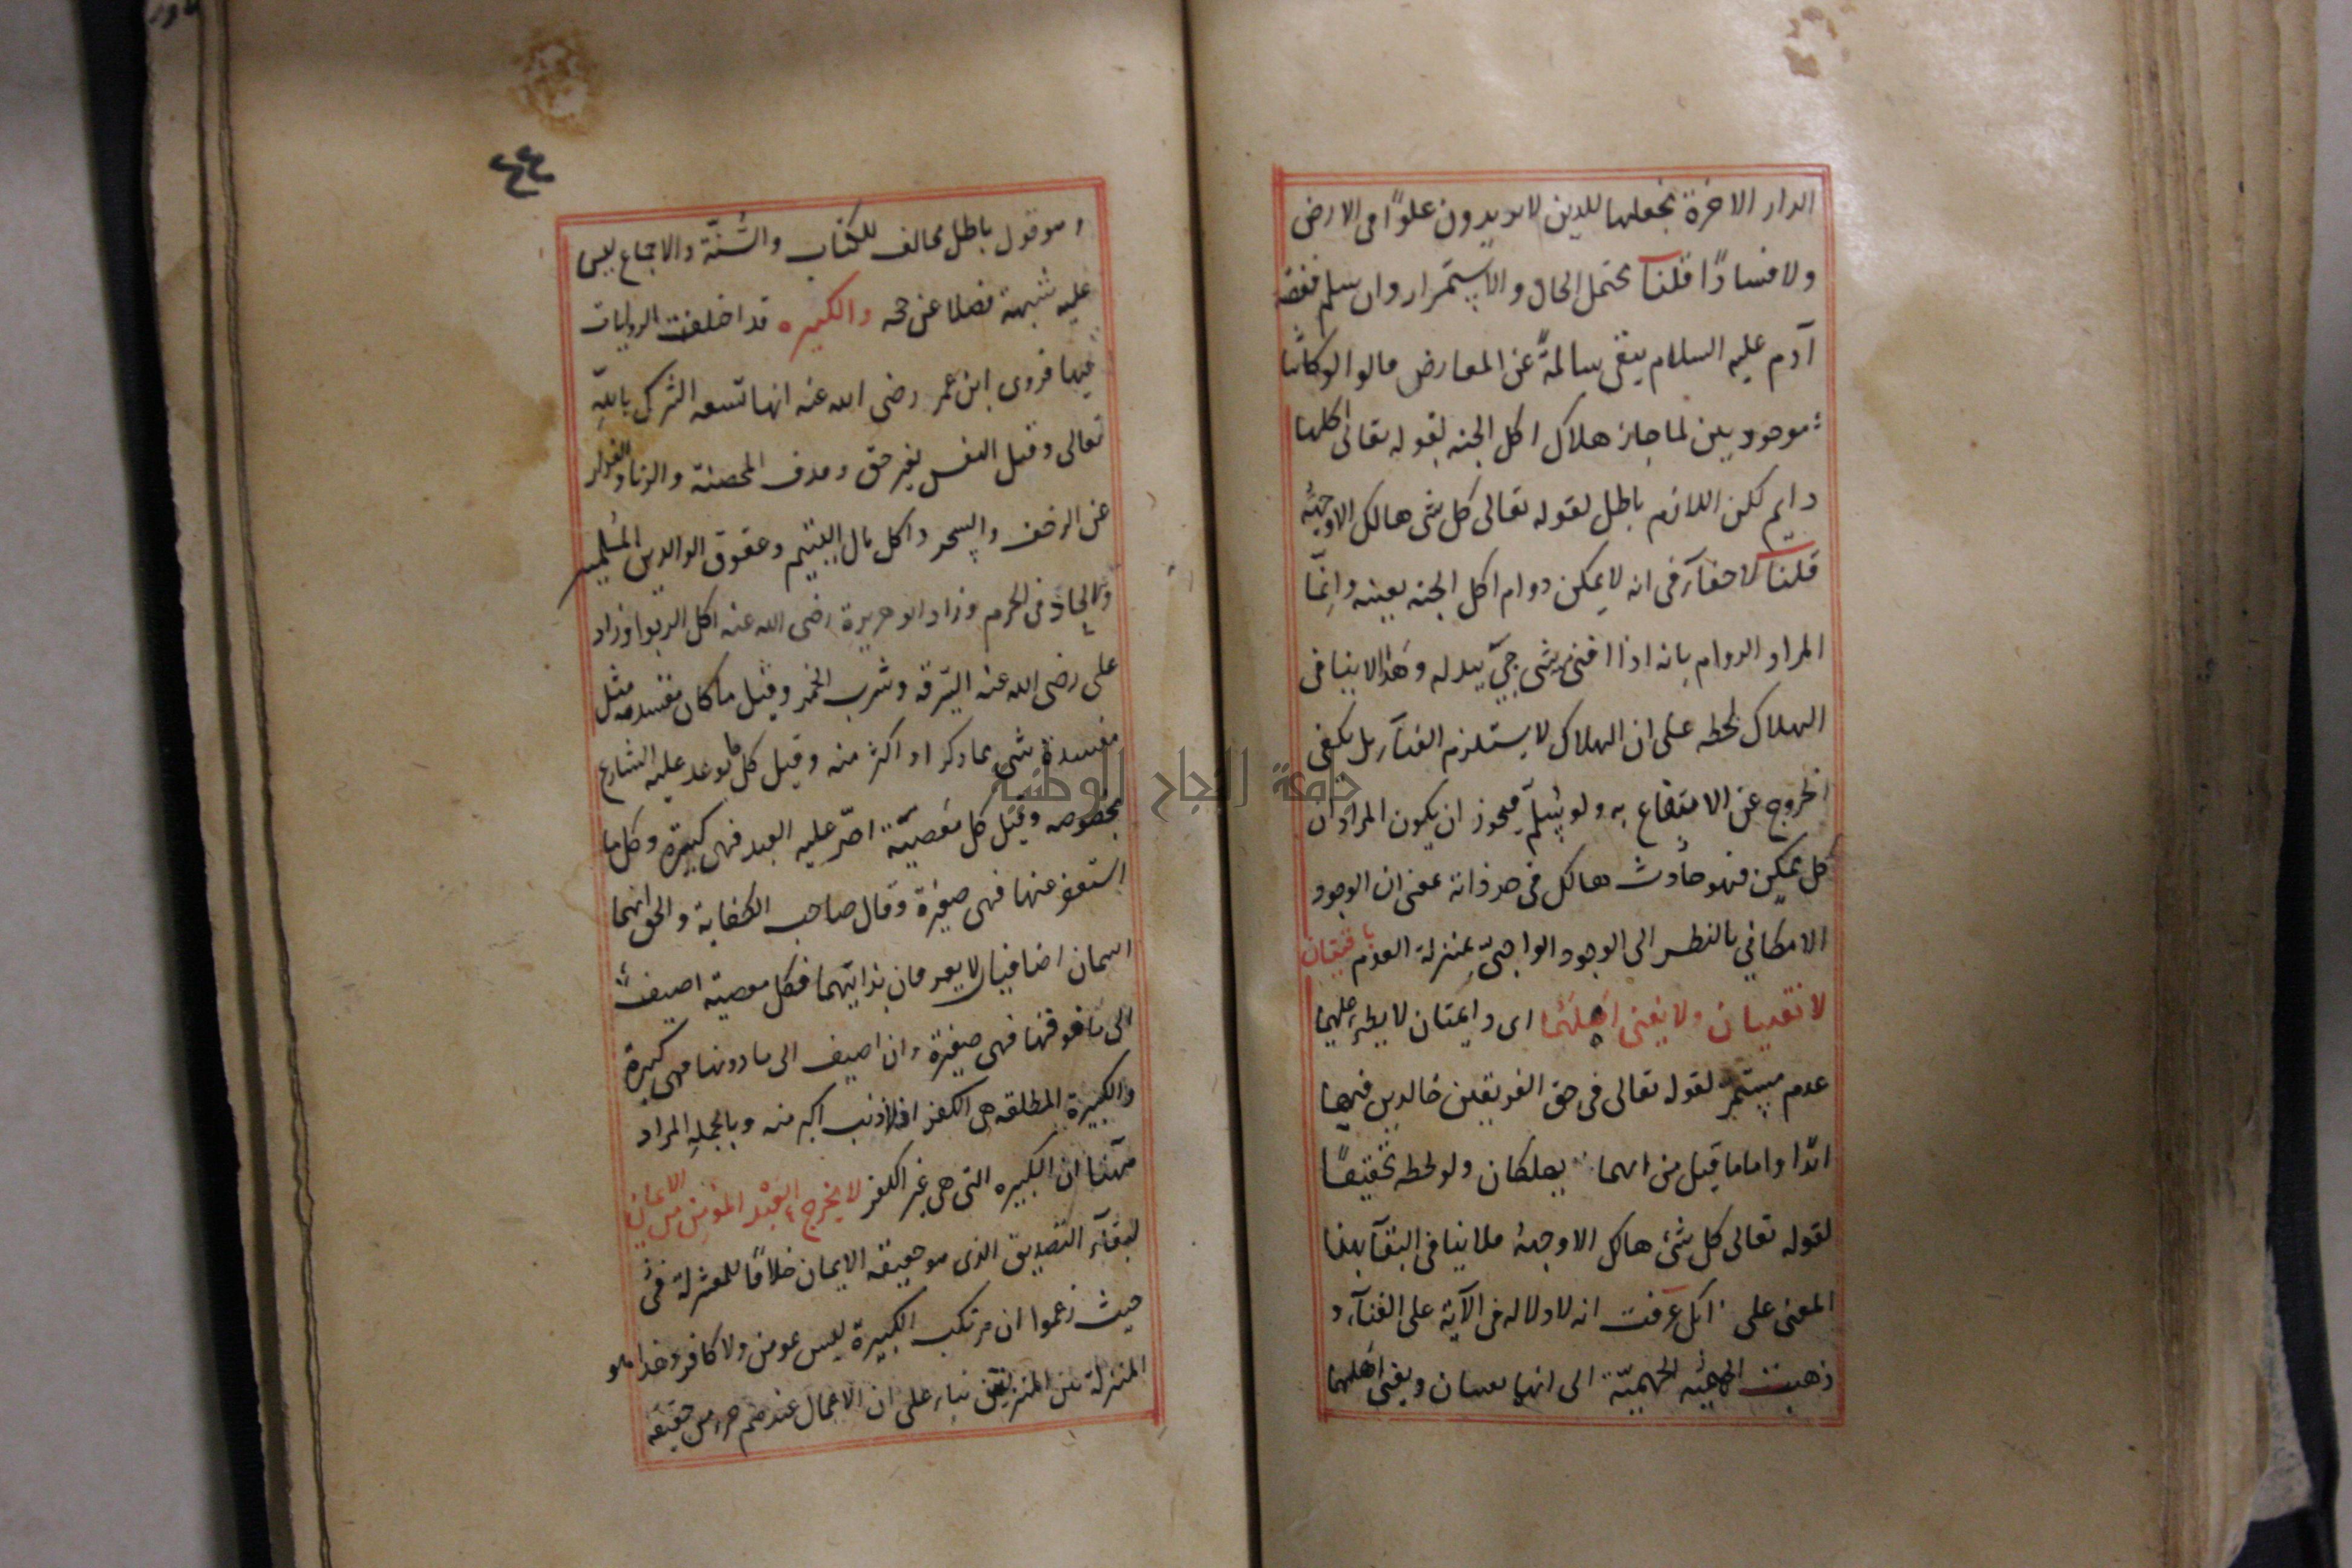 الدار الاخرة نجعلها للدين لا يريدون علوًا في الارض
ولا فسادًا قلنا يحتمل الحال والاستمرار وان سلم فقصة
آدم عليه السلام يبقى سالمةً عن المعارض قالوا لو كانتا
موجودتين لما جاز هلاك اكل الجنه لقوله تعالى اكلها
دايم لكن اللازم باطل لقوله تعالى كل شى هالك الا وجهه
قلنا لا خفآء في انه لا يمكن دوام اكل الجنه بعينه وانّما
المراد الدوام بانه اذا افنى شى جىّ ببدله وهذا لا ينافى
الهلاك لحظه على ان الهلاك لا يستلزم الفنآء بل يكفى
الخروج عن الانتفاع به ولو سلّم فيجوز ان يكون المراد ان
كل ممكن فهو حادث هالك في حد ذاته بمعنى ان الوجود
الامكاني بالنظر الى الوجود الواجبىّ بمنزلة العدم باقيتان
لا تفنيان ولا يفنى اهلهما اى دايمتان لا يطرء عليهما
عدم مستمر لقوله تعالى في حق الفريقين خالدين فيها
ابدًا واما ما قيل من انهما يهلكان ولو لحظه تحقيقًا
لقوله تعالى كل شئ هالك الا وجهه فلا ينافى البقآء بهذا
المعنى على انك عرفت انه لا دلاله فى الآية على الفنآء و
ذهبت الجهميّة الى انها يفنيان ويفنى اهلهما
٤٤
وهو قول باطل مخالف للكتاب والسُّنّة والاجماع ليس
عليه شبهة فضلا عن حجه والكبيره قد اختلفت الروايات
فيها فروى ابن عمر رضى الله عنه انها تسعه الشرك بالله
تعالى وقتل النفس بغير حق وقذف المحصنة والزنا والفرار
عن الزحف والسحر واكل مال اليتيم وعقوق الوالدين المسلمين
والالحاد في الحرم وزاد ابو هريرة رضى الله عنه اكل الربوا وزاد
على رضى الله عنه السّرقه وشرب الخمر وقيل ما كان مفسدته مثل
مفسدة شئ مما ذكر او اكثر منه وقيل كل ما توعد عليه الشارع
بخصوصه وقيل كل معصيّة اصّر عليه العبد فهى كبيرة وكل ما
استغفر عنها فهى صغيرة وقال صاحب الكفاية والحق انهما
اسمان اضافيان لا يعرفان بذاتيهما فكل معصيه اضيفت
الى ما فوقها فهى صغيرة وان اضيف الى ما دونها فهى كبيرة
والكبيرة المطلقه هى الكفر اذ لا ذنب اكبر منه وبالجملة المراد
ههنا ان الكبيره التى هى غير الكفر لا يخرج العبد المؤمن من الايمان
لبقآء التصديق الذى هو حقيقه الايمان خلافًا للمعتزلة
حيث زعموا ان مرتكب الكبيرة ليس بمومن ولا كافر وهذا هو
المنزلة بين المنزلتين بناء على ان الاعمال عندهم جزء من حقيقه
جامعة النجاح الوطنية